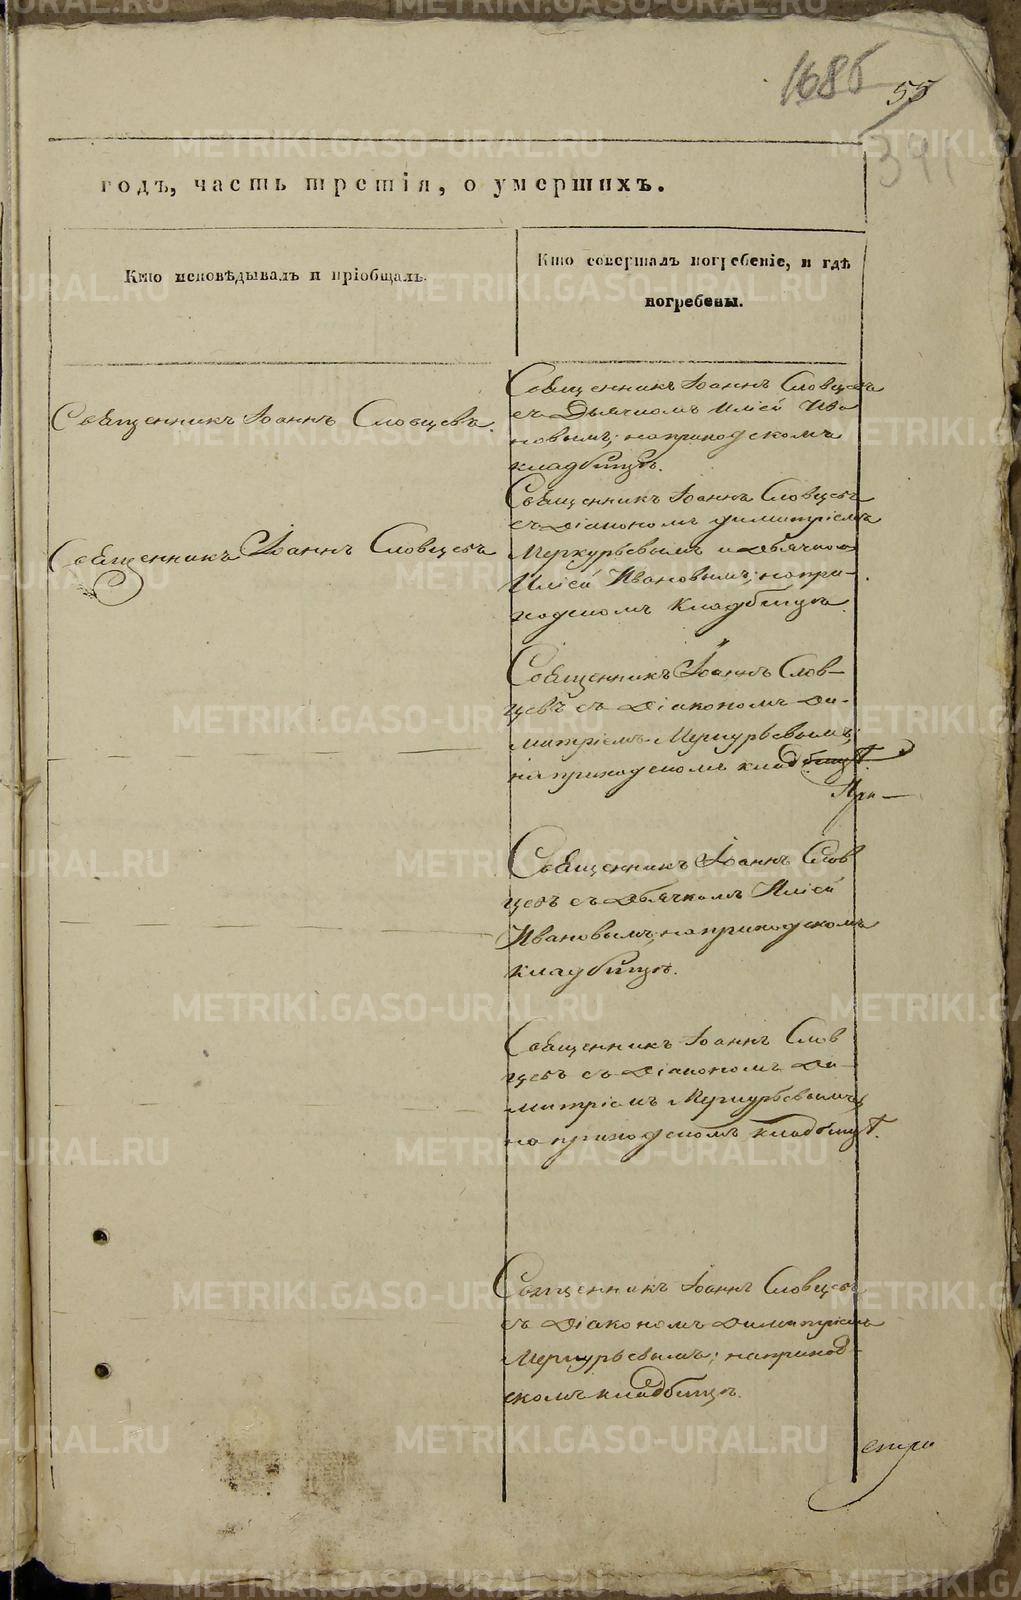 168б
55
391
годъ, часть третія, о умершихъ.
Кто исповѣдывалъ и пріобщалъ.
Кто совершалъ погребеніе, и гдѣ
погребены.
Священникъ Іоаннъ Словцевъ.
Священникъ Іоаннъ Словцевъ
съ Дьячкомъ Иліей Ива
новымъ; на приходскомъ
кладбищѣ.
Священникъ Іоаннъ Словцевъ
Священникъ Іоаннъ Словцевъ
съ Діакономъ Димитріемъ
Меркурьевымъ и Дьячкомъ
Иліей Ивановымъ; на при-
ходскомъ кладбищѣ.
Священникъ Іоаннъ Слов-
цевъ съ Діакономъ Ди-
митріемъ Меркурьевымъ;
на приходскомъ кладбищѣ.
При-
Священникъ Іоаннъ Слов
цевъ съ Дьячкомъ Иліей
Ивановымъ; на приходскомъ
кладбищѣ.
Священникъ Іоаннъ Слов
цевъ съ Діакономъ Ди-
митріемъ Меркурьевымъ;
на приходскомъ кладбищѣ.
Священникъ Іоаннъ Словцевъ
съ Діакономъ Димитріемъ
Меркурьевымъ; на приход-
скомъ кладбищѣ.
METRIKI.GASO-URAL.RU